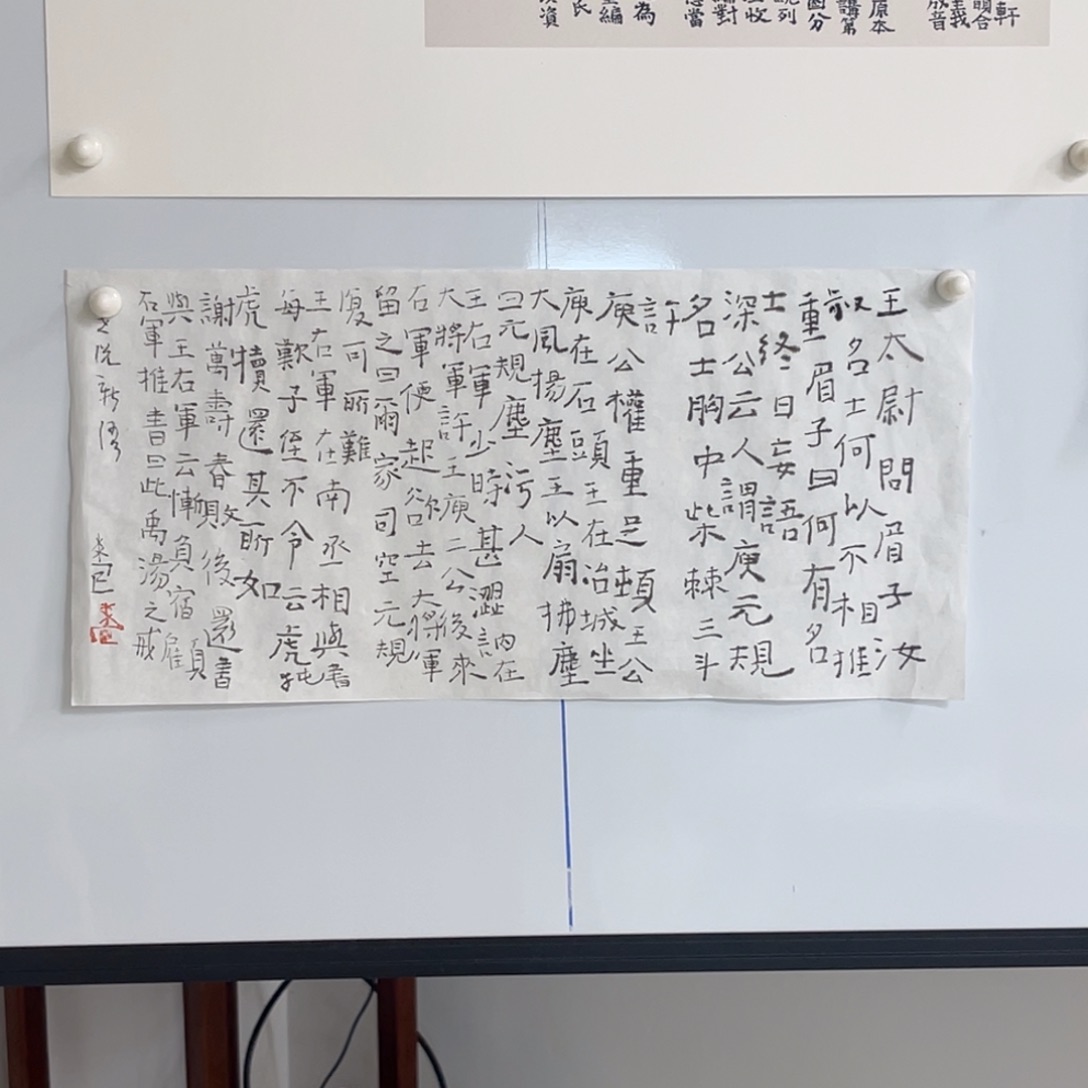 軒
原本
講第
園分
為
氏
王太尉問眉子汝
叔名士何以不相推
重眉子曰何有名
士終日妄語
深公云人謂庾元規
名士胸中柴棘三斗
許
庾公權重足傾王公
庾在石頭王在冶城坐
大風揚塵王以扇拂塵
曰元規塵污人
王右軍少時甚澀訥在
大將軍許王庾二公後來
右軍便起欲去大將軍
留之曰爾家司空元規
復可所難
王右軍在南丞相與書
每歎子侄不令云虎㹠
虎犢還其所如
謝萬壽春敗後還書
與王右軍云慚負宿顧
右軍推書曰此禹湯之戒
世説新語